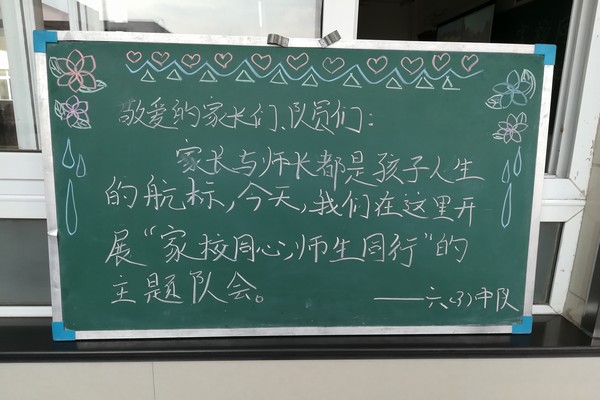 敬爱的家长们、队员们：
家长与师长都是孩子人生
的航标，今天，我们在这里开
展“家校同心，师生同行”的
主题队会。
——六(3)中队